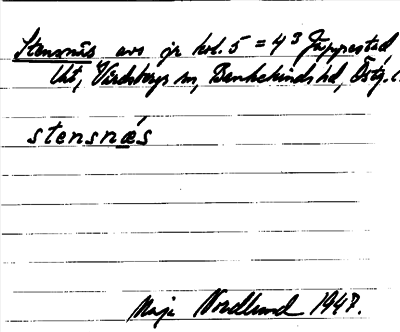 Stensnäs avs jr kol. 5 = 4³ Jäpprestad
Ut, Vårdsbergs sn, Bankekinds hd, Östg. l.
stensnǽs
Maja Nordlund 1947.